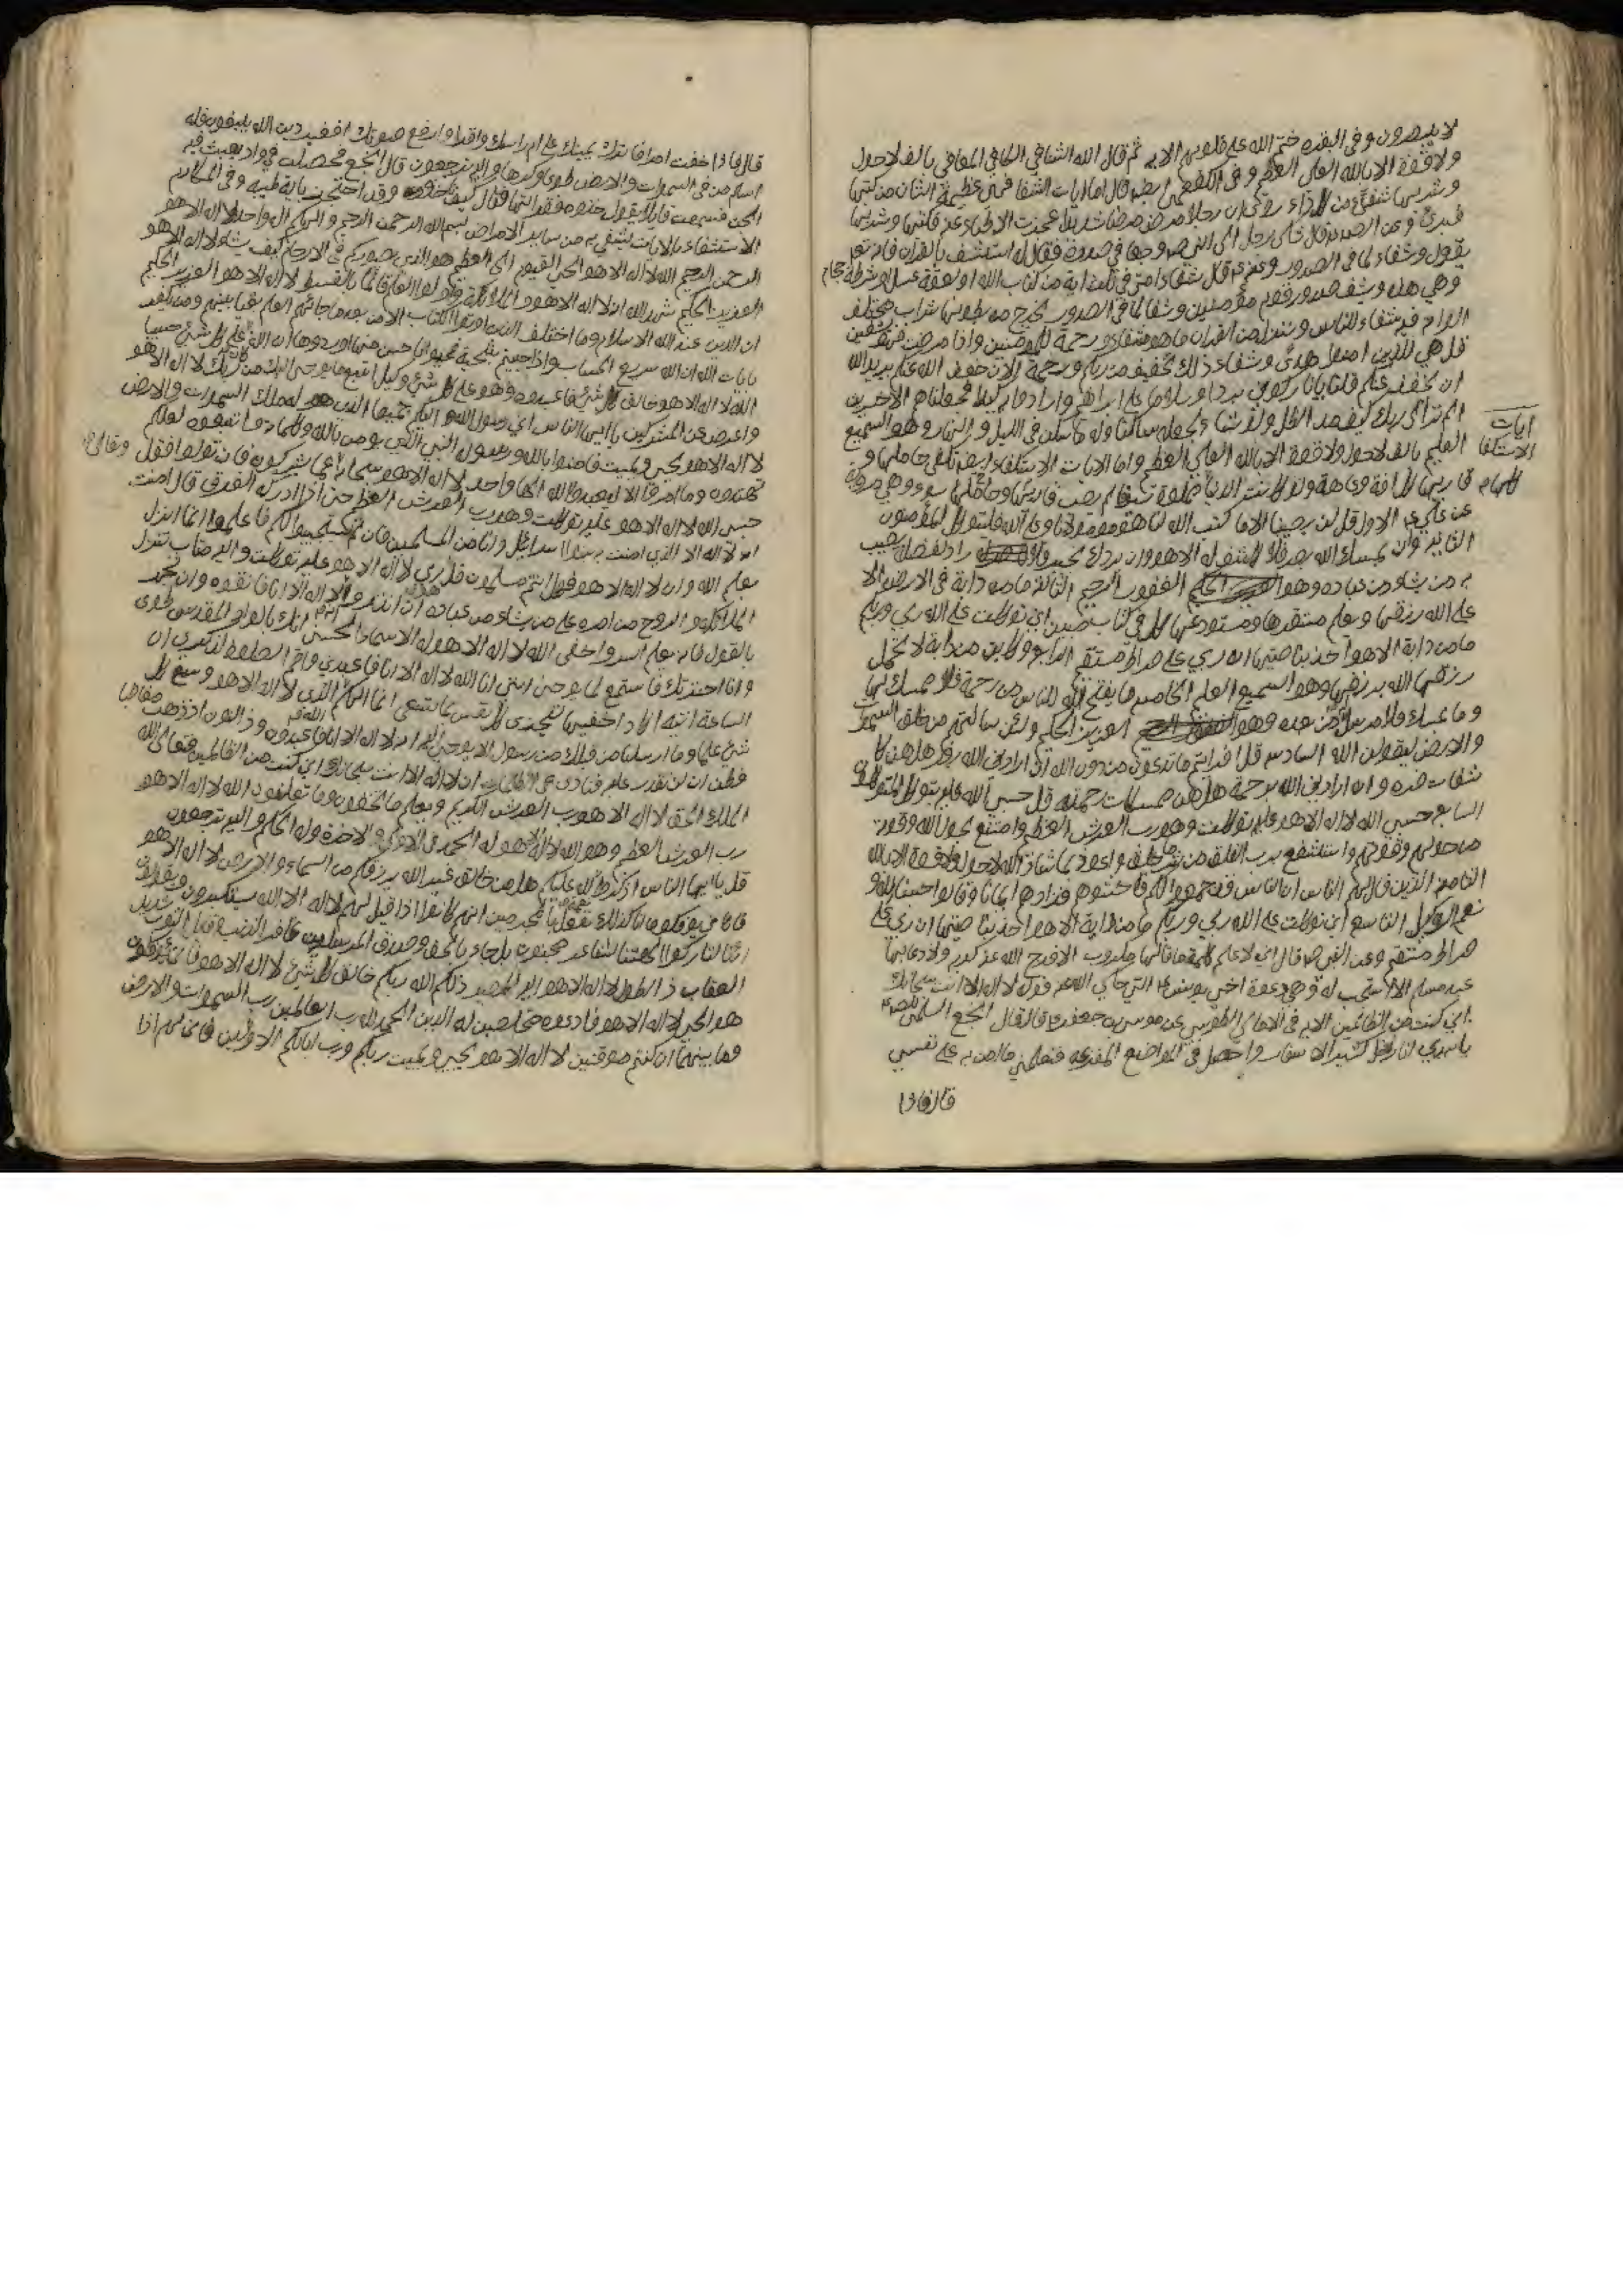 لا يبصرون وفي البقره ختم الله على قلوبهم الايه ثم قال الله الشافي الكافي المعافي بالف لاحول
ولا قوة الا بالله العلي العظيم وفي الكفعمي ايضا قال اما ايات الشفا فهي عظيمة الشان من كتبها
وشربها شفي من كل داء روي ان رجلا مرض مرضا شديدا عجزت الاطباء عنه فكتبها وشربها
فبرئ وعن الص قال شكى رجل الى النبي ص وجعا في صدره فقال له استشف بالقران فانه تعالى
يقول وشفاء لما في الصدور وعنه ص قال شفاء امتي في ثلث اية من كتاب الله او لعقة عسل او شرطة حجام
وهي هذه ويشف صدور قوم مؤمنين وشفا لما في الصدور يخرج من بطونها شراب مختلف
الوانه فيه شفاء للناس وننزل من القران ما هو شفاء ورحمة للمؤمنين واذا مرضت فهو يشفين
قل هي للذين امنوا هدى وشفاء ذلك تخفيف من ربكم ورحمة الان خفف الله عنكم يريد الله
ان يخفف عنكم قلنا يا نار كوني بردا وسلاما على ابراهيم وارادوا به كيدا فجعلناهم الاخسرين
الم تر الى ربك كيف مد الظل ولو شاء لجعله ساكنا وله ما سكن في الليل والنهار وهو السميع
العليم بالف لاحول ولا قوة الا بالله العلي العظيم واما الايات الاستكفاء
ايات
الاستكفا
عن علي ع الاول قل لن يصيبنا الا ما كتب الله لنا هو مولانا وعلى الله فليتوكل المؤمنون
الثاني وان يمسسك الله بضر فلا كاشف له الا هو وان يردك بخير فلا راد لفضله يصيب
به من يشاء من عباده وهو الغفور الرحيم الثالث وما من دابة في الارض الا
على الله رزقها ويعلم مستقرها ومستودعها كل في كتاب مبين اني توكلت على الله ربي وربكم
ما من دابة الا هو اخذ بناصيتها ان ربي على صراط مستقيم الرابع وكاين من دابة لا تحمل
رزقها الله يرزقها وهو السميع العليم الخامس ما يفتح الله للناس من رحمة فلا ممسك لها
وما يمسك فلا مرسل له من بعده وهو العزيز الحكيم ولئن سالتهم من خلق السموات
والارض ليقولن الله السادس قل افرايتم ما تدعون من دون الله ان ارادني الله بضر هل هن كا
شفات ضره او ارادني الله برحمة هل هن ممسكات رحمته قل حسبي الله عليه يتوكل المتوكلون
السابع حسبي الله لا اله الا هو عليه توكلت وهو رب العرش العظيم وامتنع بحول الله وقوته
من حولهم وقوتهم واستشفع برب الفلق من شر ما خلق واعوذ بما شاء الله لاحول ولا قوة الا بالله
الثامن الذين قال لهم الناس ان الناس قد جمعوا لكم فاخشوهم فزادهم ايمانا وقالوا حسبنا الله و
نعم الوكيل التاسع اني توكلت على الله ربي وربكم ما من دابة الا هو اخذ بناصيتها ان ربي على
صراط مستقيم وعن النبي ص قال اني لاعلم كلمة ما قالها مكروب الا فرج الله عنه كربه ولا دعا بها
عبد مسلم الا استجيب له وهي دعوة اخي يونس ع التي حكى الله عنه قوله لا اله الا انت سبحانك
اني كنت من الظالمين الايه في الامالي الطوسي عن موسى بن جعفر ع قال قال اشجع السلمي للص ع
يا سيدي انا رجل كثير الاسفار واحصل في المواضع المفزعه فتعلمني ما امن به على نفسي
قال فاذا
قال فاذا خفت امرا فاترك يمينك على ام راسك واقرا وارفع صوتك افغير دين الله يبغون وله
اسلم من في السموات والارض طوعا وكرها واليه ترجعون قال اشجع فحصلت في واد بعيث فيه
الجن فسمعت قائلا يقول خذوه فقراتها فقال كيف ناخذه وقد احتجز باية طيبه وفي المكارم
الاستشفاء بالايات يشفي به من ساير الامراض بسم الله الرحمن الرحيم والهكم اله واحد لا اله الا هو
الرحمن الرحيم الله لا اله الا هو الحي القيوم الى العظيم هو الذي يصوركم في الارحام كيف يشاء لا اله الا هو
العزيز الحكيم شهد الله انه لا اله الا هو والملائكة واولوا العلم قائما بالقسط لا اله الا هو العزيز الحكيم
ان الدين عند الله الاسلام وما اختلف الذين اوتوا الكتاب الا من بعد ما جائهم العلم بغيا بينهم ومن يكفر
بايات الله فان الله سريع الحساب واذا حييتم بتحية فحيوا باحسن منها او ردوها ان الله كان على كل شئ حسيبا
الله لا اله الا هو خالق كل شئ فاعبدوه وهو على كل شئ وكيل اتبع ما يوحى اليك من ربك لا اله الا هو
واعرض عن المشركين يا ايها الناس اني رسول الله اليكم جميعا الذي له ملك السموات والارض
لا اله الا هو يحيي ويميت فامنوا بالله ورسوله النبي الامي الذي يؤمن بالله وكلماته واتبعوه لعلكم
تهتدون وما امروا الا ليعبدوا الها واحدا لا اله الا هو سبحانه عما يشركون فان تولوا فقل
حسبي الله لا اله الا هو عليه توكلت وهو رب العرش العظيم حتى اذا ادركه الغرق قال امنت
انه لا اله الا الذي امنت به بنوا اسرائيل وانا من المسلمين فان لم يستجيبوا لكم فاعلموا انما انزل
بعلم الله وان لا اله الا هو فهل انتم مسلمون قل هو ربي لا اله الا هو عليه توكلت واليه متاب تنزل
الملائكة والروح من امره على من يشاء من عباده ان انذروا انه لا اله الا انا فاتقون وان تجهر
بالقول فانه يعلم السر واخفى الله لا اله الا هو له الاسماء الحسنى انك بالواد المقدس طوى
وانا اخترتك فاستمع لما يوحى انني انا الله لا اله الا انا فاعبدني واقم الصلوة لذكري ان
الساعة اتية اكاد اخفيها لتجزى كل نفس بما تسعى انما الهكم الله الذي لا اله الا هو وسع كل
شئ علما وما ارسلنا من قبلك من رسول الا نوحي اليه انه لا اله الا انا فاعبدون وذا النون اذ ذهب مغاضبا
فظن ان لن نقدر عليه فنادى في الظلمات ان لا اله الا انت سبحانك اني كنت من الظالمين فتعالى الله
الملك الحق لا اله الا هو رب العرش الكريم ويعلم ما تخفون وما تعلنون الله لا اله الا هو
رب العرش العظيم وهو الله لا اله الا هو له الحمد في الاولى والاخرة وله الحكم واليه ترجعون
قل يا ايها الناس اذكروا نعمة الله عليكم هل من خالق غير الله يرزقكم من السماء والارض لا اله الا هو
فانى تؤفكون انا كذلك نفعل بالمجرمين انهم كانوا اذا قيل لهم لا اله الا الله يستكبرون ويقولون
ائنا لتاركوا الهتنا لشاعر مجنون بل جاء بالحق وصدق المرسلين غافر الذنب وقابل التوب شديد
العقاب ذي الطول لا اله الا هو اليه المصير ذلكم الله ربكم خالق كل شئ لا اله الا هو فانى تؤفكون
هو الحي لا اله الا هو فادعوه مخلصين له الدين الحمد لله رب العالمين رب السموات والارض
وما بينهما ان كنتم موقنين لا اله الا هو يحيي ويميت ربكم ورب ابائكم الاولين فانى لهم اذا